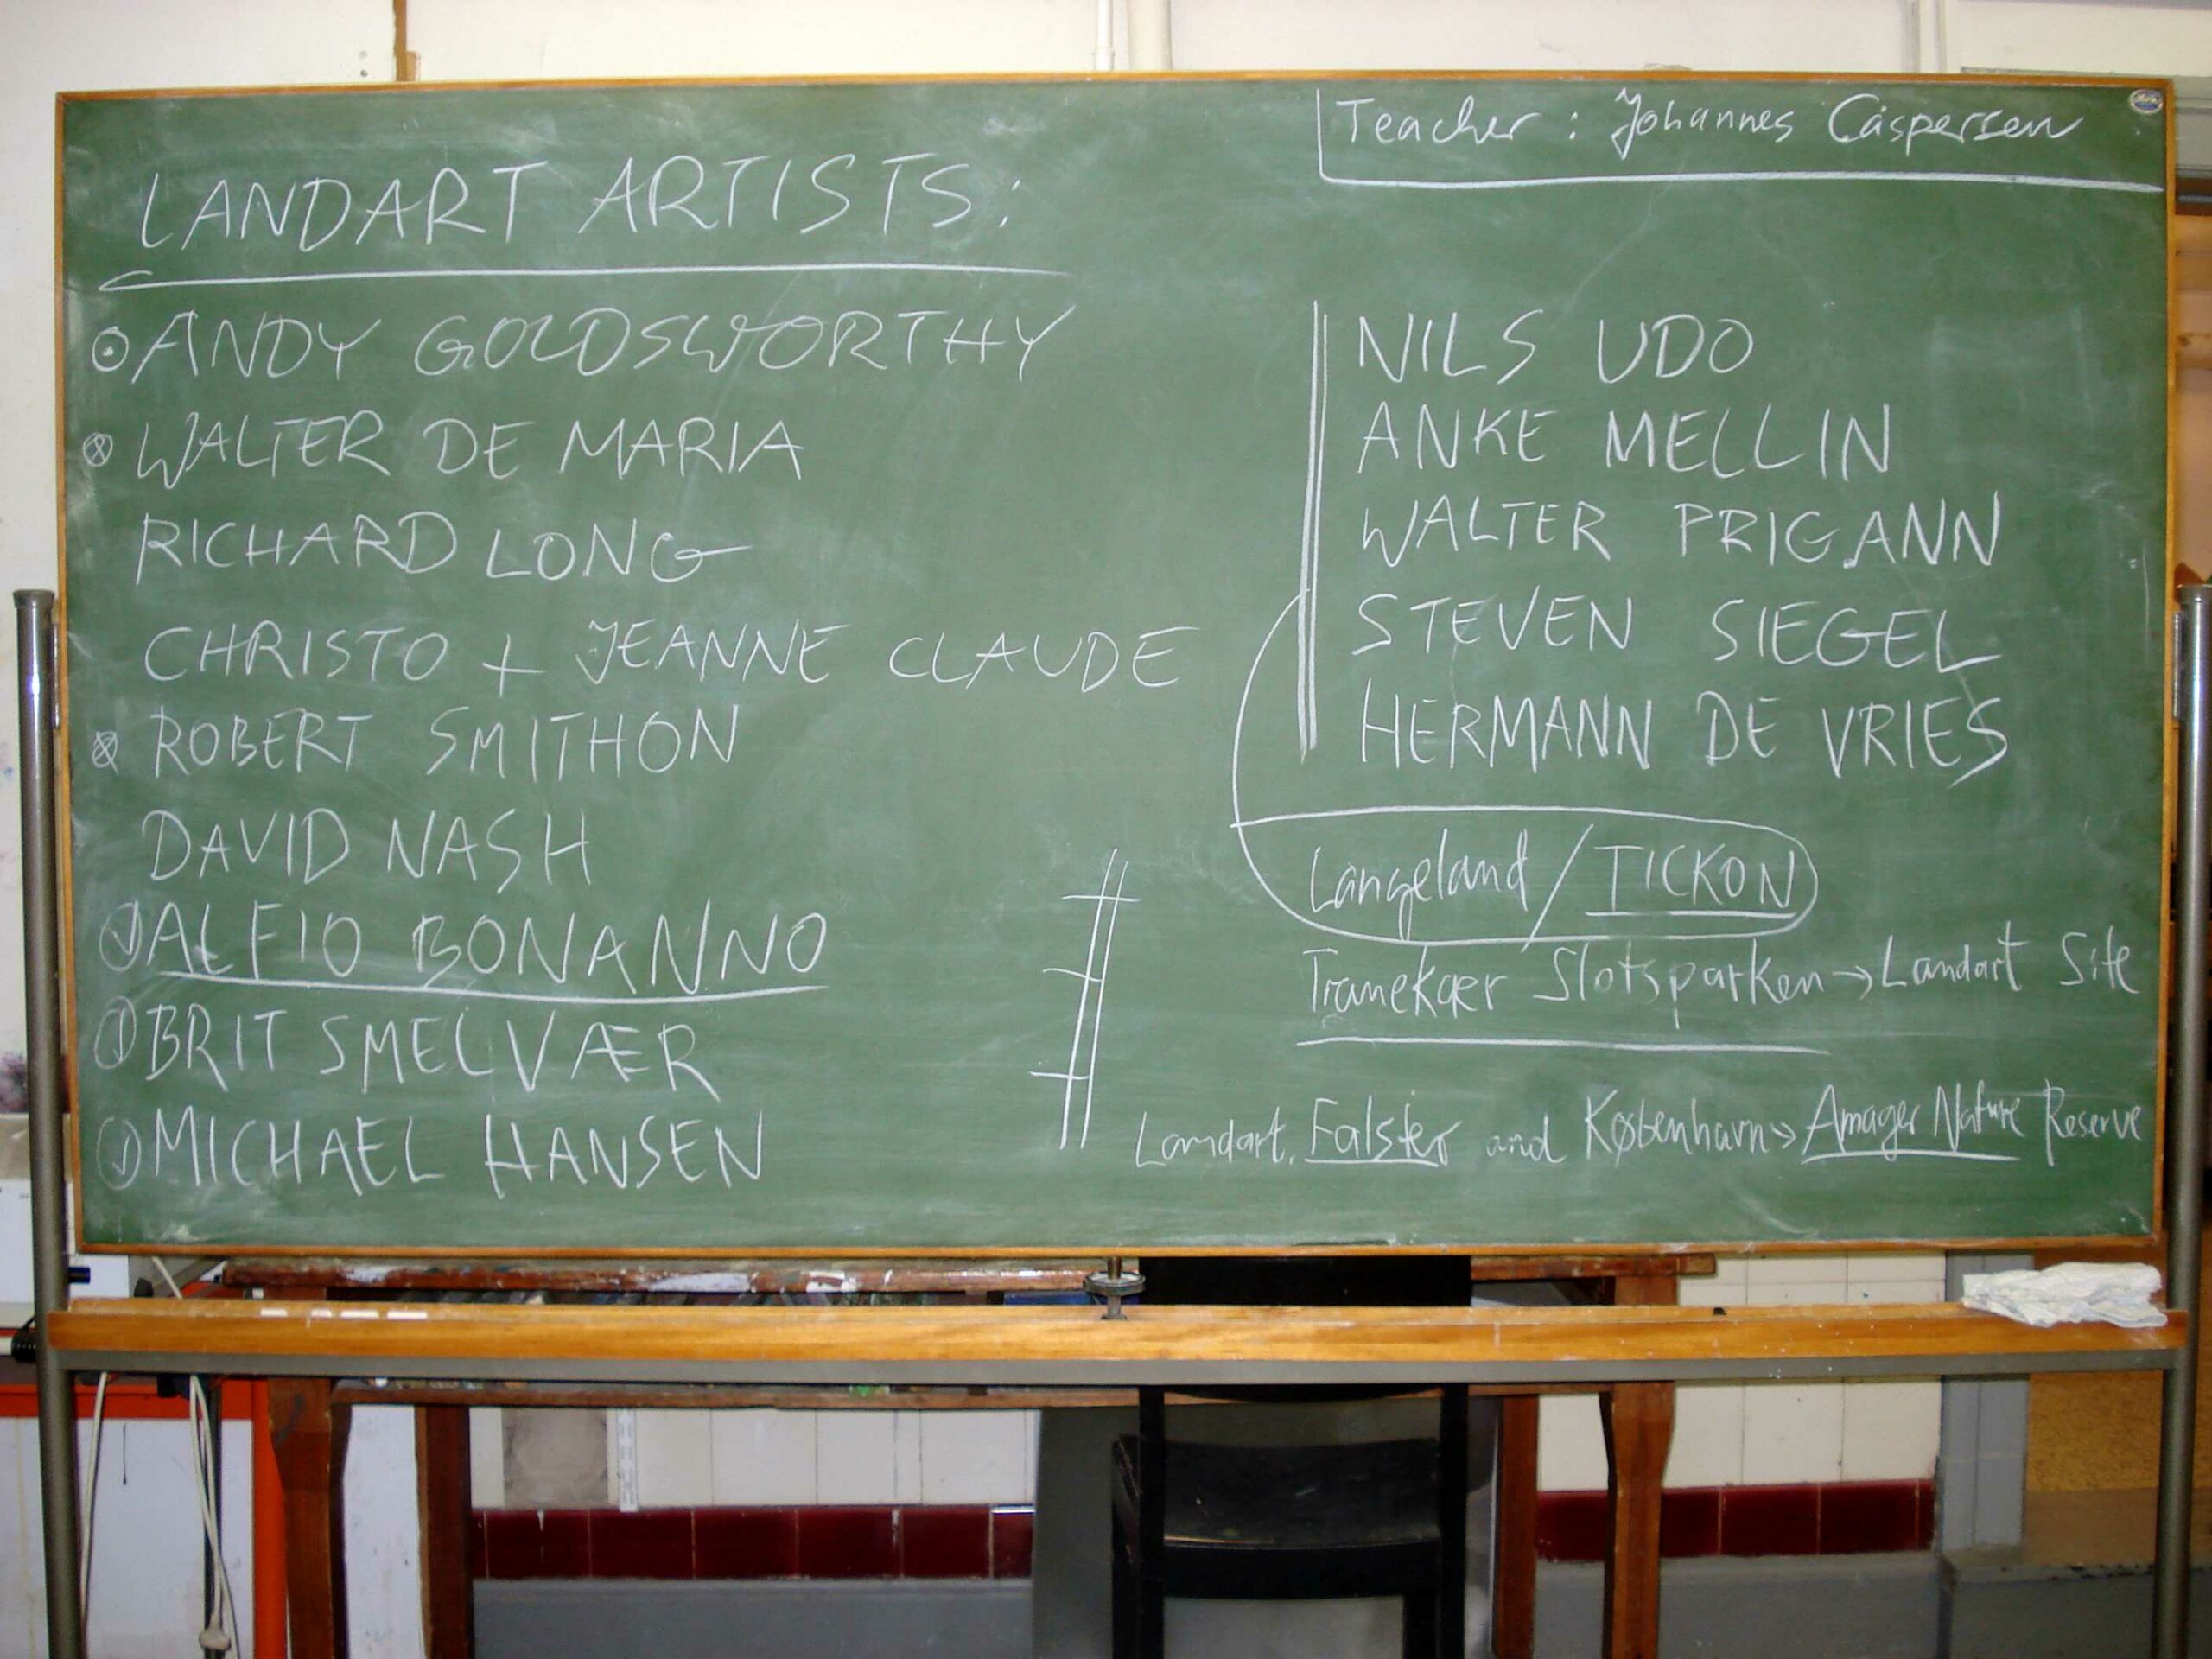 Teacher: Johannes Caspersen
LANDART ARTISTS:
ANDY GOLDSWORTHY
WALTER DE MARIA
RICHARD LONG
CHRISTO + JEANNE CLAUDE
ROBERT SMITHON
DAVID NASH
ALFIO BONANNO
BRIT SMELVÆR
MICHAEL HANSEN
NILS UDO
ANKE MELLIN
WALTER PRIGANN
STEVEN SIEGEL
HERMANN DE VRIES
Langeland/TICKON
Tranekær Slotsparken → Landart Site
Landart. Falster and København → Amager Nature Reserve